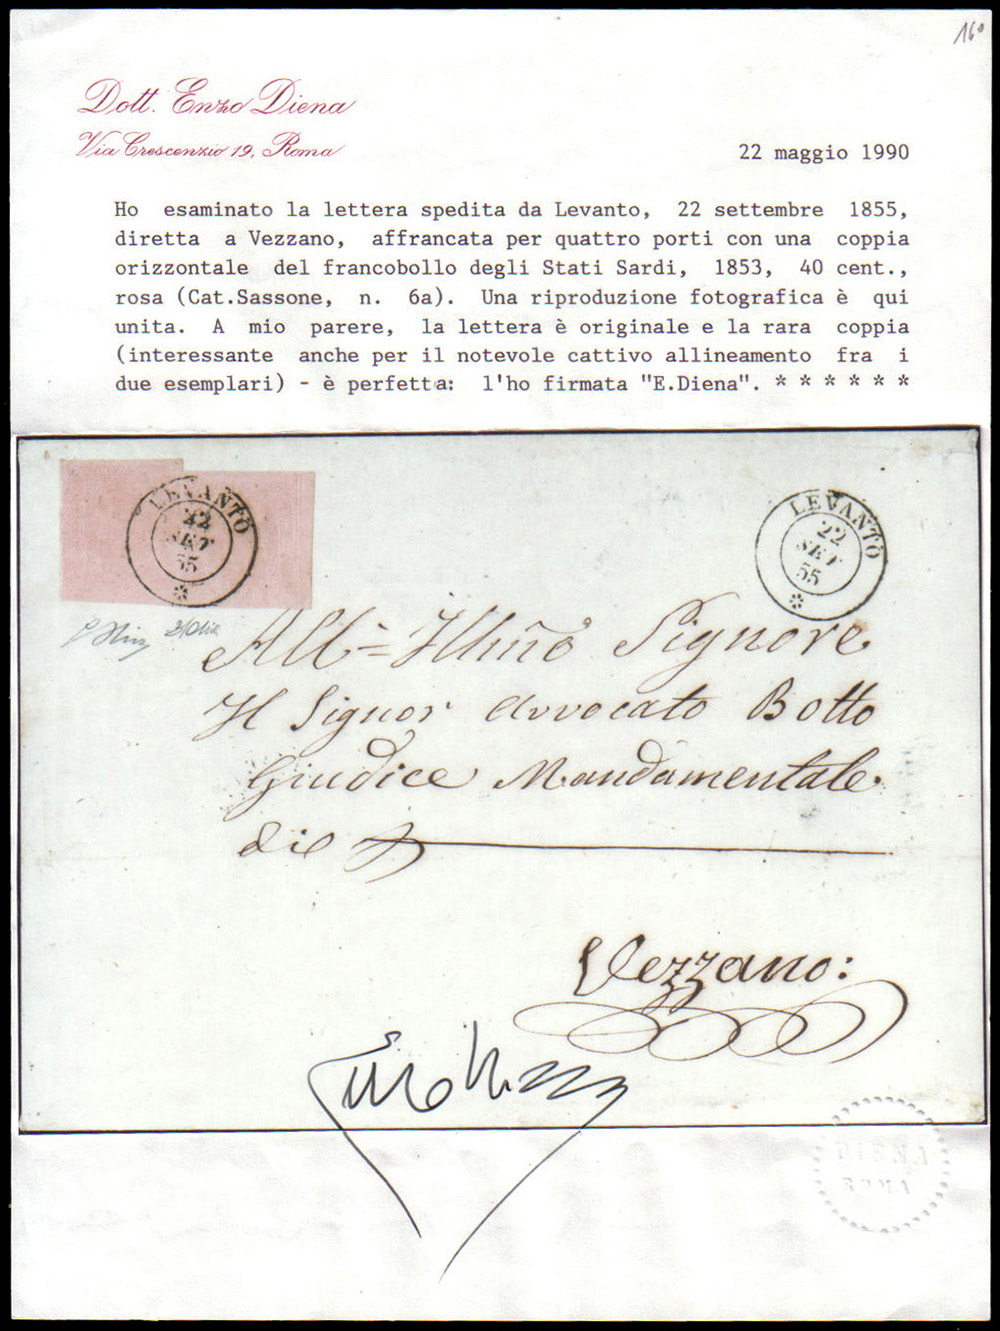 160
Dott. Enzo Diena
Via Crescenzio 19, Roma
22 maggio 1990
Ho esaminato la lettera spedita da Levanto, 22 settembre 1855,
diretta a Vezzano, affrancata per quattro porti con una coppia
orizzontale del francobollo degli Stati Sardi, 1853, 40 cent.,
rosa (Cat.Sassone, n. 6a). Una riproduzione fotografica è qui
unita. A mio parere, la lettera è originale e la rara coppia
(interessante anche per il notevole cattivo allineamento fra i
due esemplari) - è perfetta: l'ho firmata "E.Diena". * * * * * *
LEVANTO
22
SET
55
LEVANTO
22
SET
55
All' Illmo Signore
Il Signor Avvocato Botto
Giudice Mandamentale
di
Vezzano:
DIENA
ROMA